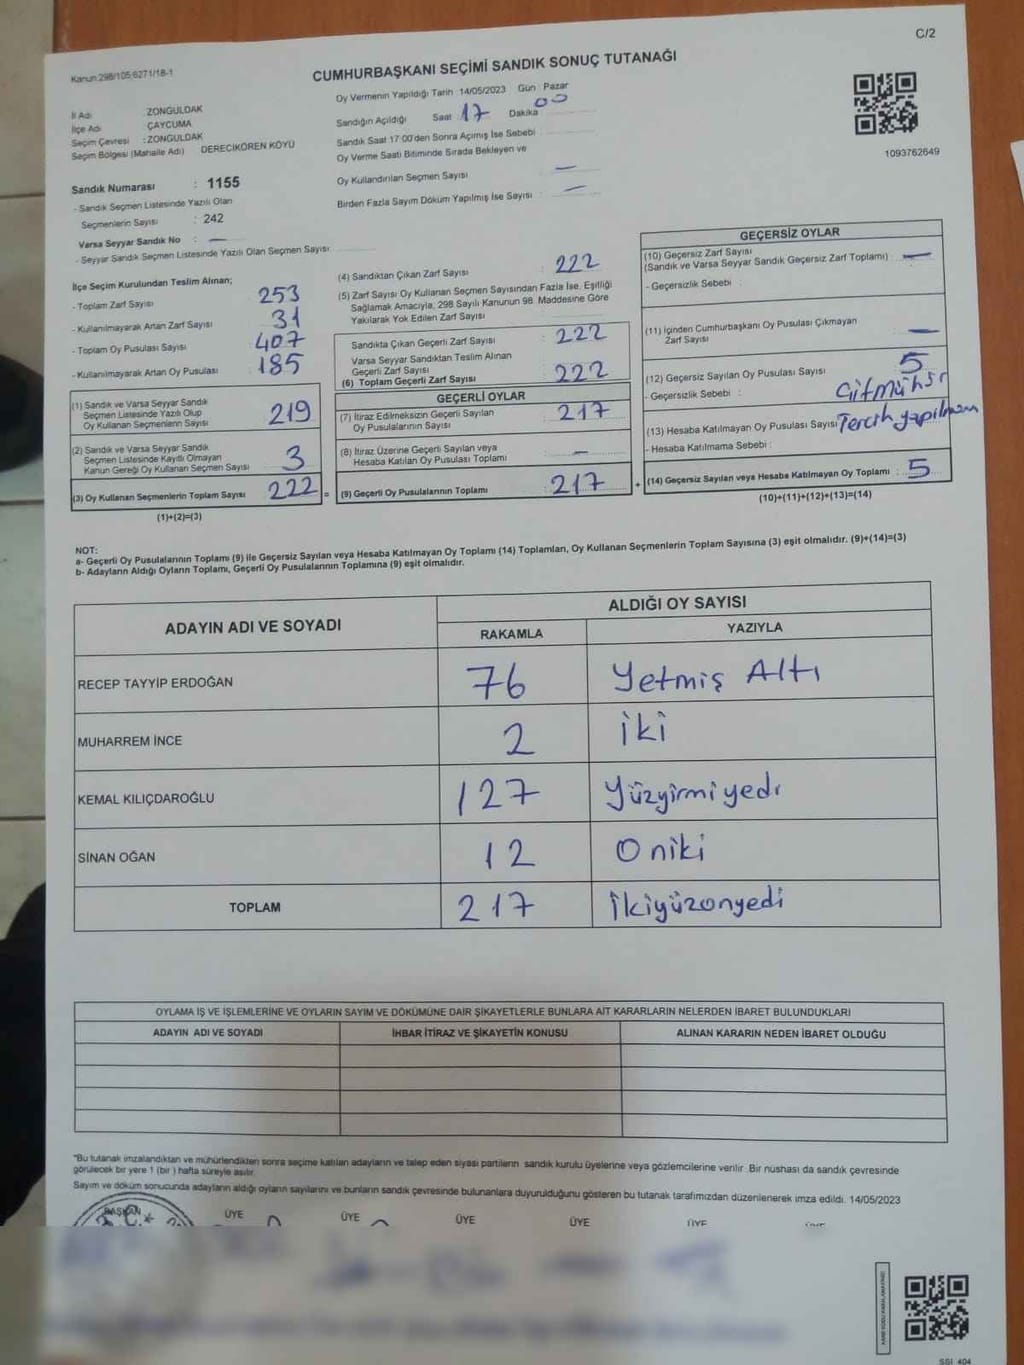 C/2
Kanun:298/105;6271/18-1
CUMHURBAŞKANI SEÇİMİ SANDIK SONUÇ TUTANAĞI
İl Adı ZONGULDAK
İlçe Adı ÇAYCUMA
Seçim Çevresi :ZONGULDAK
Seçim Bölgesi (Mahalle Adı) DERECİKÖREN KÖYÜ
Oy Vermenin Yapıldığı Tarih :14/05/2023 Gün : Pazar
Sandığın Açıldığı Saat 17 Dakika 00
Sandık Saat 17:00'den Sonra Açılmış İse Sebebi
Oy Verme Saati Bitiminde Sırada Bekleyen ve
Oy Kullandırılan Seçmen Sayısı —
Birden Fazla Sayım Döküm Yapılmış İse Sayısı —
1093762649
Sandık Numarası : 1155
- Sandık Seçmen Listesinde Yazılı Olan
Seçmenlerin Sayısı : 242
Varsa Seyyar Sandık No : —
- Seyyar Sandık Seçmen Listesinde Yazılı Olan Seçmen Sayısı
İlçe Seçim Kurulundan Teslim Alınan;
- Toplam Zarf Sayısı 253
- Kullanılmayarak Artan Zarf Sayısı 31
- Toplam Oy Pusulası Sayısı 407
- Kullanılmayarak Artan Oy Pusulası 185
(1) Sandık ve Varsa Seyyar Sandık
Seçmen Listesinde Yazılı Olup
Oy Kullanan Seçmenlerin Sayısı 219
(2) Sandık ve Varsa Seyyar Sandık
Seçmen Listesinde Kayıtlı Olmayan
Kanun Gereği Oy Kullanan Seçmen Sayısı 3
(3) Oy Kullanan Seçmenlerin Toplam Sayısı 222 =
(1)+(2)=(3)
(4) Sandıktan Çıkan Zarf Sayısı : 222
(5) Zarf Sayısı Oy Kullanan Seçmen Sayısından Fazla İse, Eşitliği
Sağlamak Amacıyla, 298 Sayılı Kanunun 98. Maddesine Göre
Yakılarak Yok Edilen Zarf Sayısı
Sandıkta Çıkan Geçerli Zarf Sayısı : 222
Varsa Seyyar Sandıktan Teslim Alınan
Geçerli Zarf Sayısı
(6) Toplam Geçerli Zarf Sayısı 222
GEÇERLİ OYLAR
(7) İtiraz Edilmeksizin Geçerli Sayılan
Oy Pusulalarının Sayısı : 217
(8) İtiraz Üzerine Geçerli Sayılan veya
Hesaba Katılan Oy Pusulası Toplamı —
(9) Geçerli Oy Pusulalarının Toplamı : 217 +
GEÇERSİZ OYLAR
(10) Geçersiz Zarf Sayısı
(Sandık ve Varsa Seyyar Sandık Geçersiz Zarf Toplamı) : —
- Geçersizlik Sebebi :
(11) İçinden Cumhurbaşkanı Oy Pusulası Çıkmayan
Zarf Sayısı —
(12) Geçersiz Sayılan Oy Pusulası Sayısı : 5
- Geçersizlik Sebebi :
(13) Hesaba Katılmayan Oy Pusulası Sayısı
- Hesaba Katılmama Sebebi :
(14) Geçersiz Sayılan veya Hesaba Katılmayan Oy Toplamı : 5
(10)+(11)+(12)+(13)=(14)
NOT:
a- Geçerli Oy Pusulalarının Toplamı (9) ile Geçersiz Sayılan veya Hesaba Katılmayan Oy Toplamı (14) Toplamları, Oy Kullanan Seçmenlerin Toplam Sayısına (3) eşit olmalıdır. (9)+(14)=(3)
b- Adayların Aldığı Oyların Toplamı, Geçerli Oy Pusulalarının Toplamına (9) eşit olmalıdır.
ADAYIN ADI VE SOYADI
ALDIĞI OY SAYISI
RAKAMLA YAZIYLA
RECEP TAYYİP ERDOĞAN 76 Yetmiş Altı
MUHARREM İNCE 2 İki
KEMAL KILIÇDAROĞLU 127 Yüzyirmiyedi
SİNAN OĞAN 12 Oniki
TOPLAM 217 İkiyüzonyedi
OYLAMA İŞ VE İŞLEMLERİNE VE OYLARIN SAYIM VE DÖKÜMÜNE DAİR ŞİKAYETLERLE BUNLARA AİT KARARLARIN NELERDEN İBARET BULUNDUKLARI
ADAYIN ADI VE SOYADI İHBAR İTİRAZ VE ŞİKAYETİN KONUSU ALINAN KARARIN NEDEN İBARET OLDUĞU
"Bu tutanak imzalandıktan ve mühürlendikten sonra seçime katılan adayların ve talep eden siyasi partilerin sandık kurulu üyelerine veya gözlemcilerine verilir. Bir nüshası da sandık çevresinde
görülecek bir yere 1 (bir) hafta süreyle asılır.
Sayım ve döküm sonucunda adayların aldığı oyların sayılarını ve bunların sandık çevresinde bulunanlara duyurulduğunu gösteren bu tutanak tarafımızdan düzenlenerek imza edildi. 14/05/2023
BAŞKAN ÜYE ÜYE ÜYE ÜYE ÜYE
SSI 404